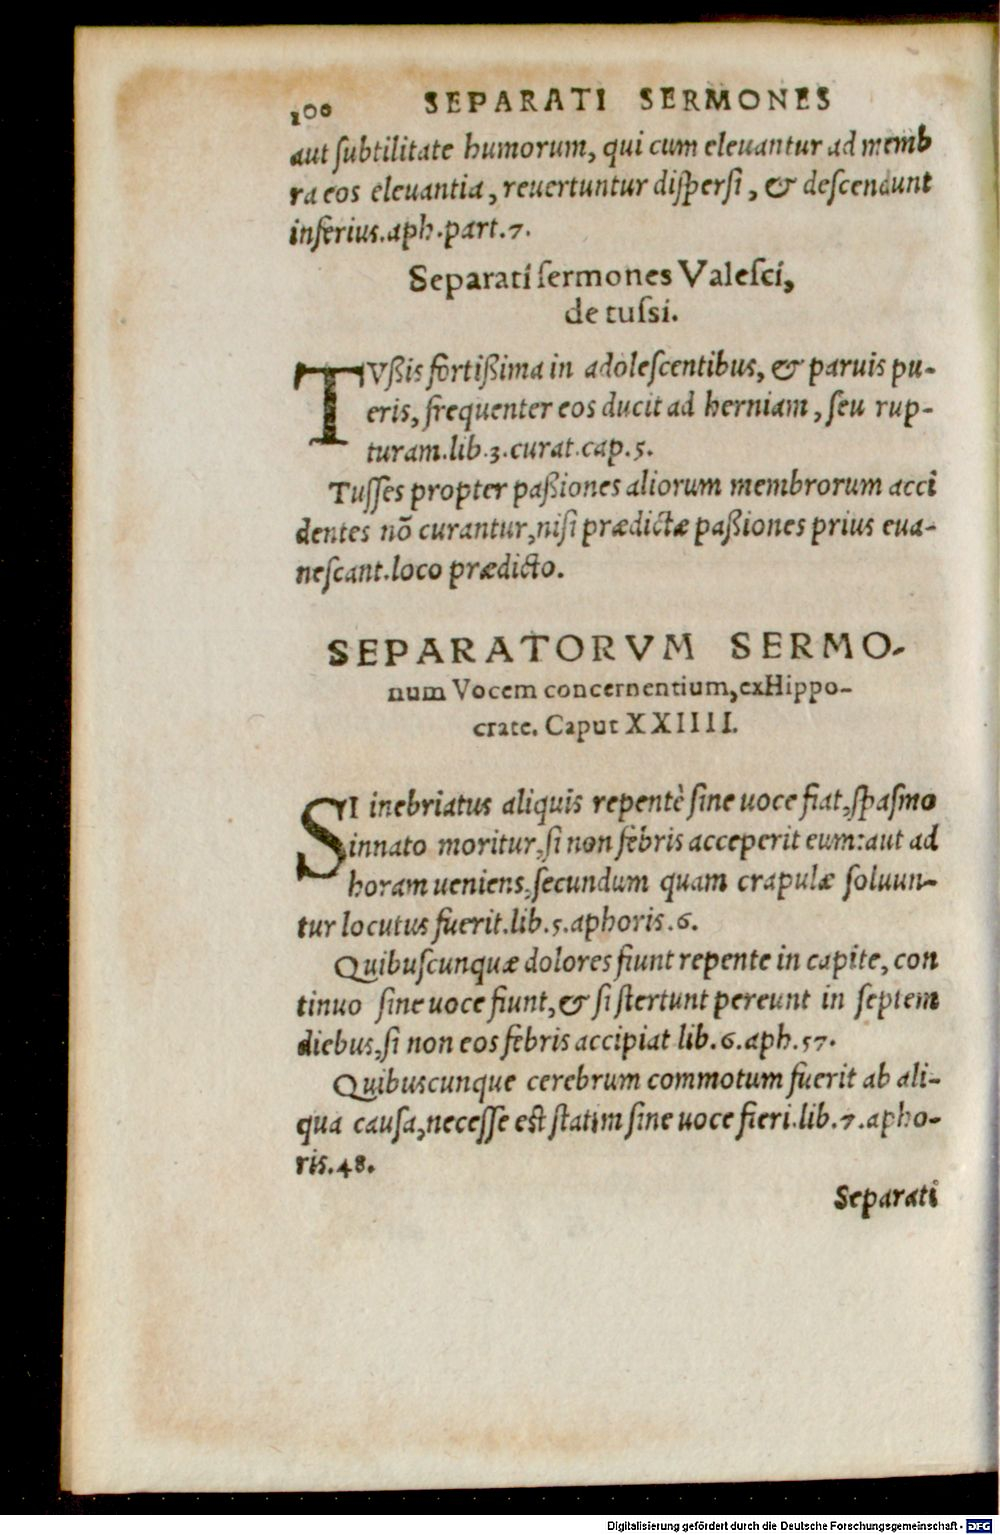 100 SEPARATI SERMONES
aut ſubtilitate humorum, qui cum eleuantur ad memb
ra eos eleuantia, reuertuntur diſperſi, & deſcendunt
inferius.aph.part.7.
Separati ſermones Valeſci,
de tuſsi.
TVßis fortißima in adoleſcentibus, & paruis pu-
eris, frequenter eos ducit ad herniam, ſeu rup-
turam.lib.3.curat.cap.5.
Tuſſes propter paßiones aliorum membrorum acci
dentes nō curantur, niſi prædictæ paßiones prius eua-
neſcant.loco prædicto.
SEPARATORVM SERMO-
num Vocem concernentium, exHippo-
crate. Caput XXIIII.
SI inebriatus aliquis repentè ſine uoce fiat, ſpaſmo
innato moritur, ſi non febris acceperit eum: aut ad
horam ueniens, ſecundum quam crapulæ ſoluun-
tur locutus fuerit.lib.5.aphoris.6.
Quibuſcunquæ dolores fiunt repente in capite, con
tinuo ſine uoce fiunt, & ſi ſtertunt pereunt in ſeptem
diebus, ſi non eos febris accipiat lib.6.aph.57.
Quibuscunque cerebrum commotum fuerit ab ali-
qua cauſa, neceſſe eſt ſtatim ſine uoce fieri.lib.7.apho-
ris.48.
Separati
Digitalisierung gefördert durch die Deutsche Forschungsgemeinschaft - DFG